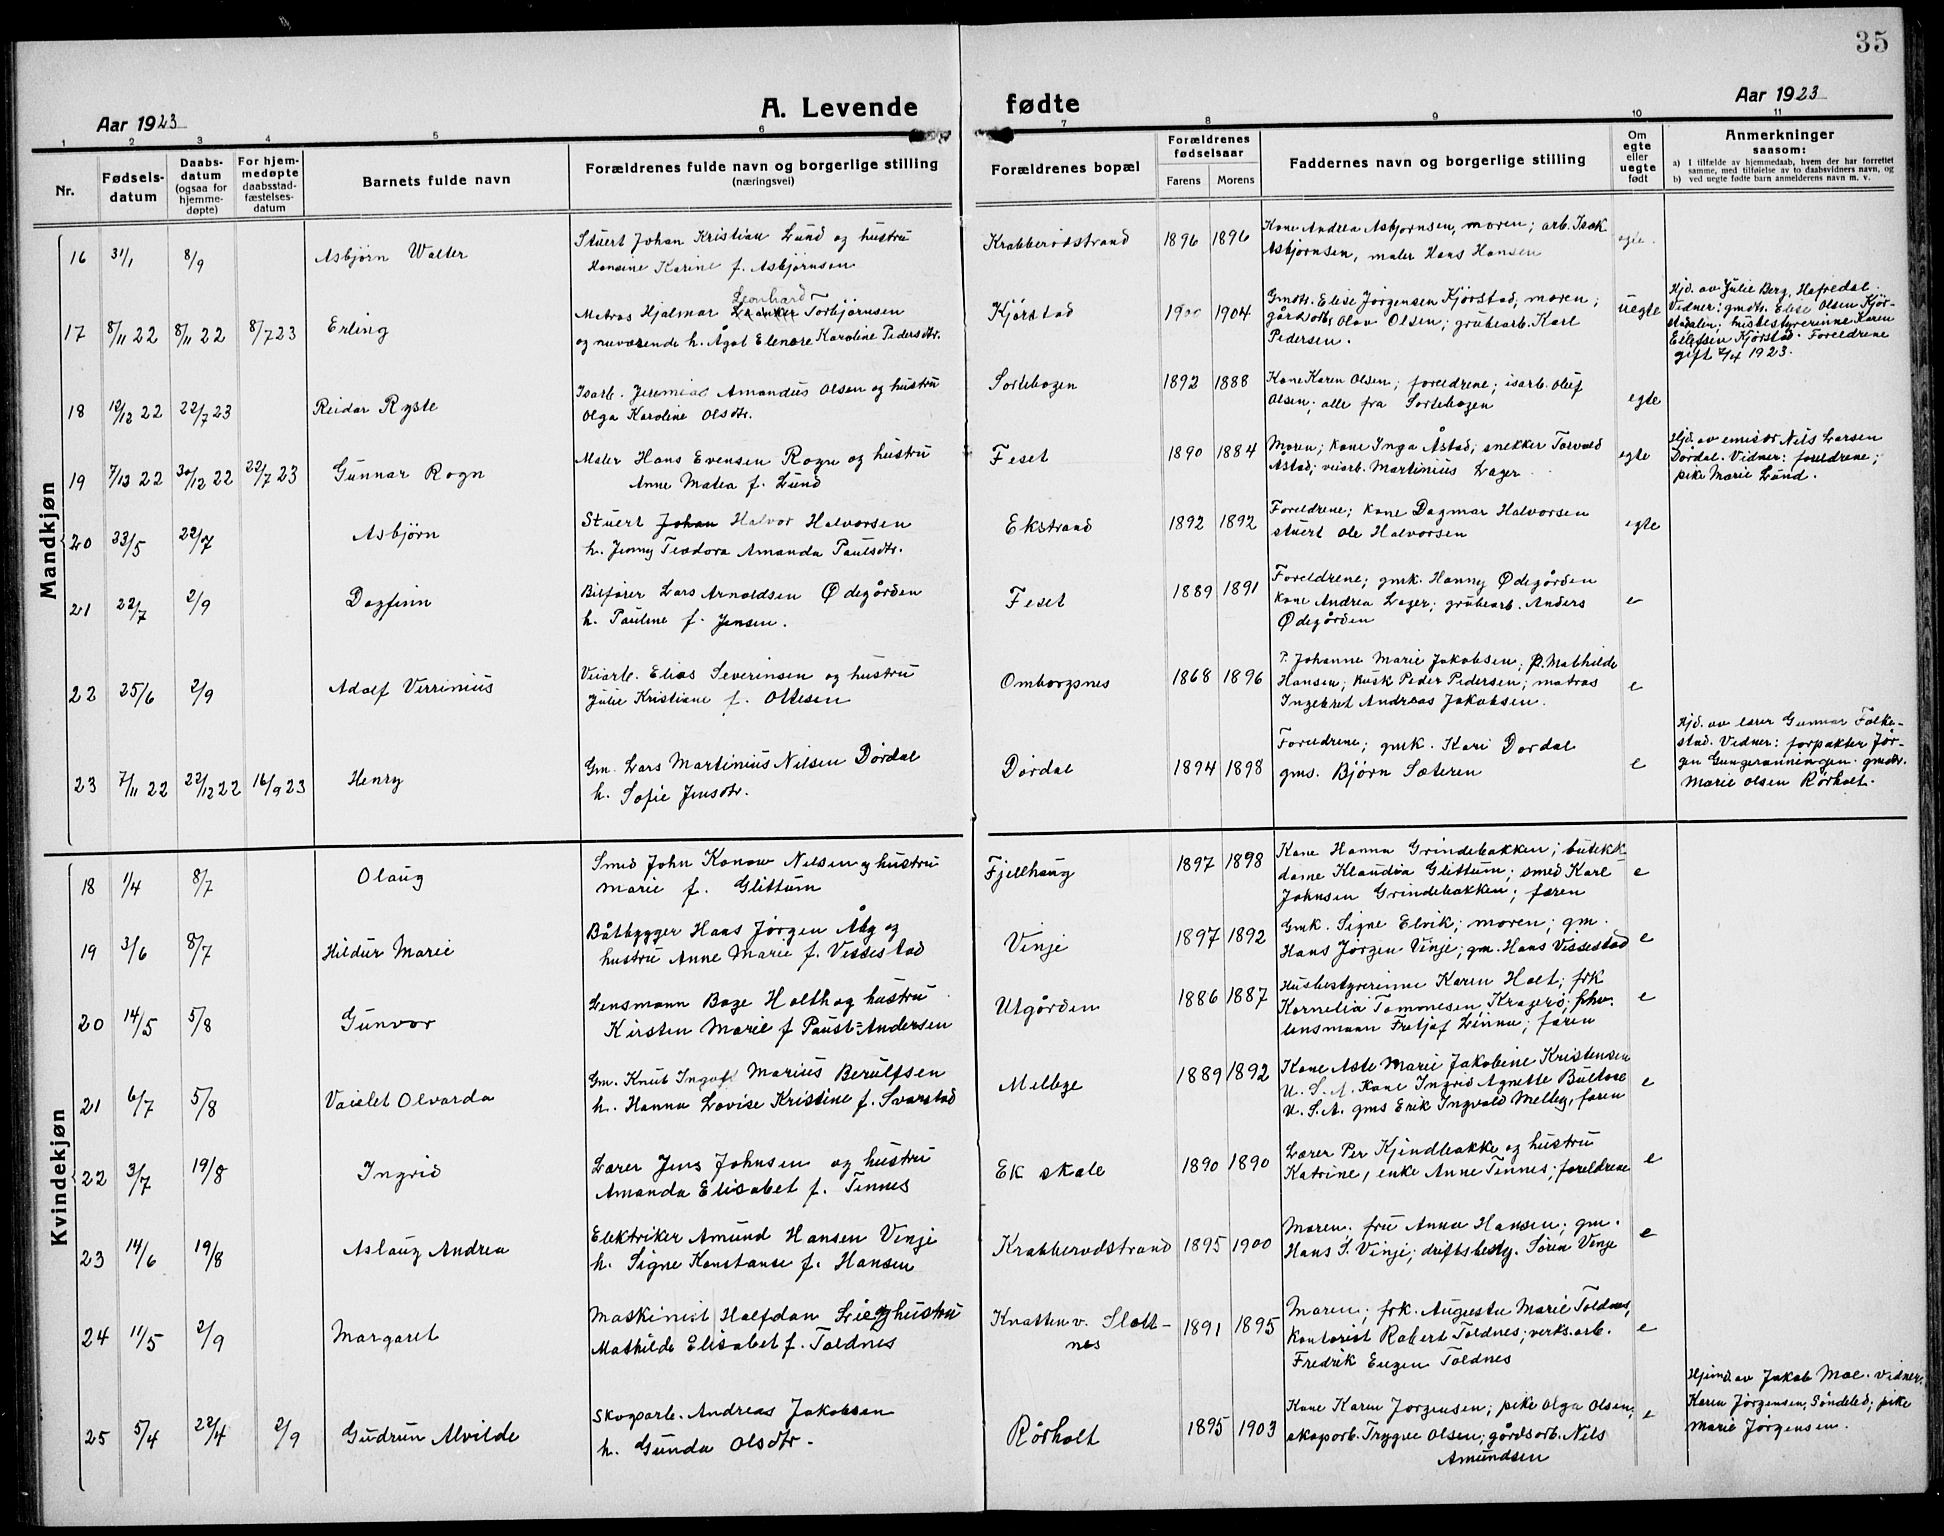 35
Aar 1923
A. Levende fødte
Aar 1923
1 2 3 4 5 6 7 8 9 10 11
Nr.
Fødsels-
datum
Daabs-
datum
(ogsaa for
hjemme-
døpte)
For hjem-
medøpte
daabsstad-
fæstelses-
datum
Barnets fulde navn
Forældrenes fulde navn og borgerlige stilling
(næringsvei)
Forældrenes bopæl
Forældrenes
fødselsaar
Farens Morens
Faddernes navn og borgerlige stilling
Om
egte
eller
uegte
født
Anmerkninger
saasom:
a) I tilfælde av hjemmedaab, hvem der har forrettet
samme, med tilføielse av to daabsvidners navn, og
b) ved uegte fødte barn anmelderens navn m. v.
Mandkjøn
16 31/1 8/9 Asbjørn Walter
Stuert Johan Kristian Lund og hustru
Hansine Karine f. Asbjørnsen
Krabberødstrand 1896 1896
Kone Andrea Asbjørnsen, moren; arb. Isak
Asbjørnsen, maler Hans Hansen
egte.
17 8/11 22 8/11 22 8/7 23 Erling
Leonhard
Matros Hjalmar Torbjørnsen
og nuværende h. Ågot Elenore Karoline Pedersdtr.
Kjørstad 1900 1904
Gmdtr. Elise Jørgensen Kjørstad; moren;
gårdsarb. Olav Olsen; grubearb. Karl
Pedersen.
uegte
Hjd. av Julie Berg, Hafredal.
Vidner: gmdtr. Elise Olsen Kjør-
stadalen; husbestyrerinne Karen
Ellefsen Kjørstad. Foreldrene
gift 2/4 1923.
18 12/12 22 22/7 23 Reidar Ryste
Isarb. Jeremias Amandus Olsen og hustru
Olga Karoline Olsdtr.
Sortebogen 1892 1888
Kone Karen Olsen; foreldrene; isarb. Oluf
Olsen; alle fra Sortebogen
egte
19 7/12 22 30/12 22 22/7 23 Gunnar Rogn
Maler Hans Evensen Rogn og hustru
Anne Matea f. Lund
Feset 1890 1884
Moren; kone Inga Åstad; snekker Torvald
Åstad; veiarb. Martinius Lager
egte
Hjd. av emisør Nils Larsen
Dørdal. Vidner: foreldrene;
pike Marie Lund.
20 23/5 22/7 Asbjørn
Stuert Johan Halvor Halvorsen
h. Jenny Teodora Amanda Paulsdtr.
Ekstrand 1892 1892
Foreldrene; kone Dagmar Halvorsen
stuert Ole Halvorsen
egte
21 22/7 2/9 Dagfinn
Bilfører Lars Arnoldsen Ødegården
h. Pauline f. Jensen.
Feset 1889 1891
Foreldrene; gmk. Hanny Ødegården
Kone Andrea Lager; grubearb. Anders
Ødegården
e
22 25/6 2/9 Adolf Verrinius
Veiarb. Elias Severinsen og hustru
Julie Kristiane f. Ottesen
Omborgsnes 1868 1896
P. Johanne Marie Jakobsen; p. Mathilde
Hansen; kusk Peder Pedersen; matros
Ingebret Andreas Jakobsen.
e
23 7/11 22 22/12 22 16/9 23 Henry
Gm. Lars Martinius Nilsen Dørdal
h. Sofie Jensdtr.
Dørdal 1894 1898
Foreldrene; gmk. Kari Dørdal
gms. Bjørn Sæteren
e
Hjd. av lærer Gunnar Falke-
stad. Vidner: forpakter Jør-
gen . gmdtr.
Marie Olsen Rørholt.
Kvindekjøn
18 1/4 8/7 Olaug
Smed John Konow Nilsen og hustru
Marie f. Glittum
Fjellhaug 1897 1898
Kone Hanna Grindebakken; butikk-
dame Klaudia Glittum; smed Karl
Johnsen Grindebakken; faren
e
19 3/6 8/7 Hildur Marie
Båtbygger Hans Jørgen Åby og
hustru Anne Marie f. Vissestad
Vinje 1897 1892
Gmk. Signe Elvik; moren; gm.
Hans Jørgen Vinje; gm. Hans Vissestad
e
20 14/5 5/8 Gunvor
Lensmann Bage Holth og hustru
Kirsten Marie f Paust-Andersen
Utgården 1886 1887
Husbestyrerinne Karen Holt; frk
Kornelia Tomonesen, Kragerø; fhv.
lensmann Fretjof Linnu; faren
e
21 6/7 5/8 Vaielet Olvarda
Gm. Knut Ingvf Marius Berulfsen
h. Hanna Lovise Kristine f. Svarstad
Mellege 1889 1892
Kone Aste Marie Jakobine Kristensen
U. S. A. Kone Ingrid Agnette Bultose
U. S. A. gms Erik Ingvald Melby, faren
e
22 3/7 19/8 Ingrid
Lærer Jens Johnsen og hustru
Amanda Elisabet f. Tinnes
Ek skole 1890 1890
Lærer Per Kjindbakke og hustru
Katrine, enke Anne Tinnes; foreldrene
e
23 14/6 19/8 Aslaug Andrea
Elektriker Amund Hansen Vinje
h. Signe Konstanse f. Hansen
Krabberødstrand 1895 1900
Moren; fru Anna Hansen; gm.
Hans S. Vinje; driftsbesty. Søren Vinje
e
24 11/5 2/9 Margaret
Maskinist Halfdan Lie og hustru
Mathilde Elisabet f. Toldnes
Knatten v. Slott-
nes
1891 1895
Moren; frk. Augusta Marie Toldnes,
Kontorist Robert Toldnes; verks.arb.
Fredrik Eugen Toldnes
e
25 5/4 22/4 2/9 Gudrun Alvilde
Skogarb. Andreas Jakobsen
h. Gunda Olsdtr.
Rørholt 1895 1903
Kone Karen Jørgensen; pike Olga Olsen;
skogarb. Trygve Olsen; gårdsarb. Nils
Amundsen
e
Hjemd. av Jakob Moe. Vidner:
Karen Jørgensen, Søndeled; pike
Marie Jørgensen.